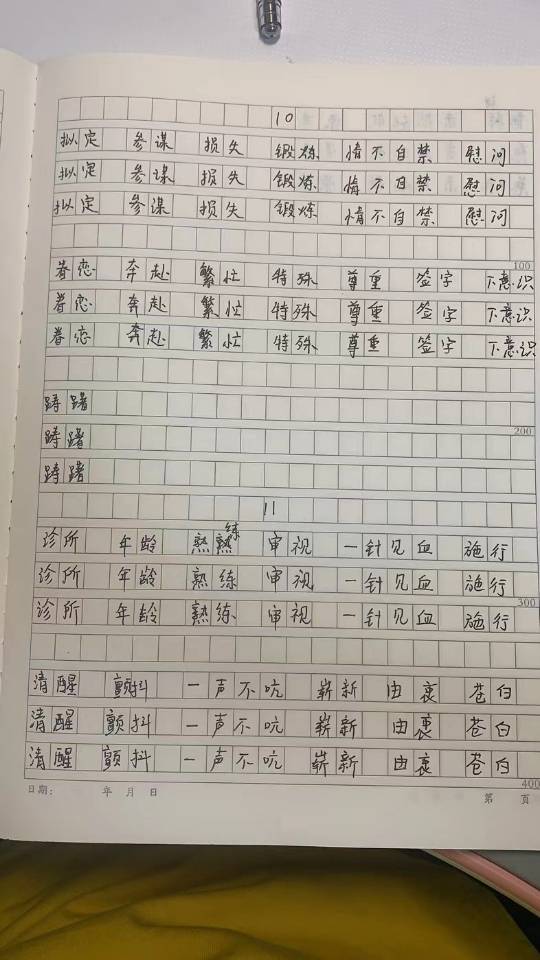 10
拟定 参谋 损失 锻炼 情不自禁 慰问
拟定 参谋 损失 锻炼 情不自禁 慰问
拟定 参谋 损失 锻炼 情不自禁 慰问
100
眷恋 奔赴 繁忙 特殊 尊重 签字 下意识
眷恋 奔赴 繁忙 特殊 尊重 签字 下意识
眷恋 奔赴 繁忙 特殊 尊重 签字 下意识
踌躇
200
踌躇
踌躇
11
诊所 年龄 熟练 审视 一针见血 施行
诊所 年龄 熟练 审视 一针见血 施行
300
诊所 年龄 熟练 审视 一针见血 施行
清醒 颤抖 一声不吭 崭新 由衷 苍白
清醒 颤抖 一声不吭 崭新 由衷 苍白
清醒 颤抖 一声不吭 崭新 由衷 苍白
400
日期: 年 月 日 第 页